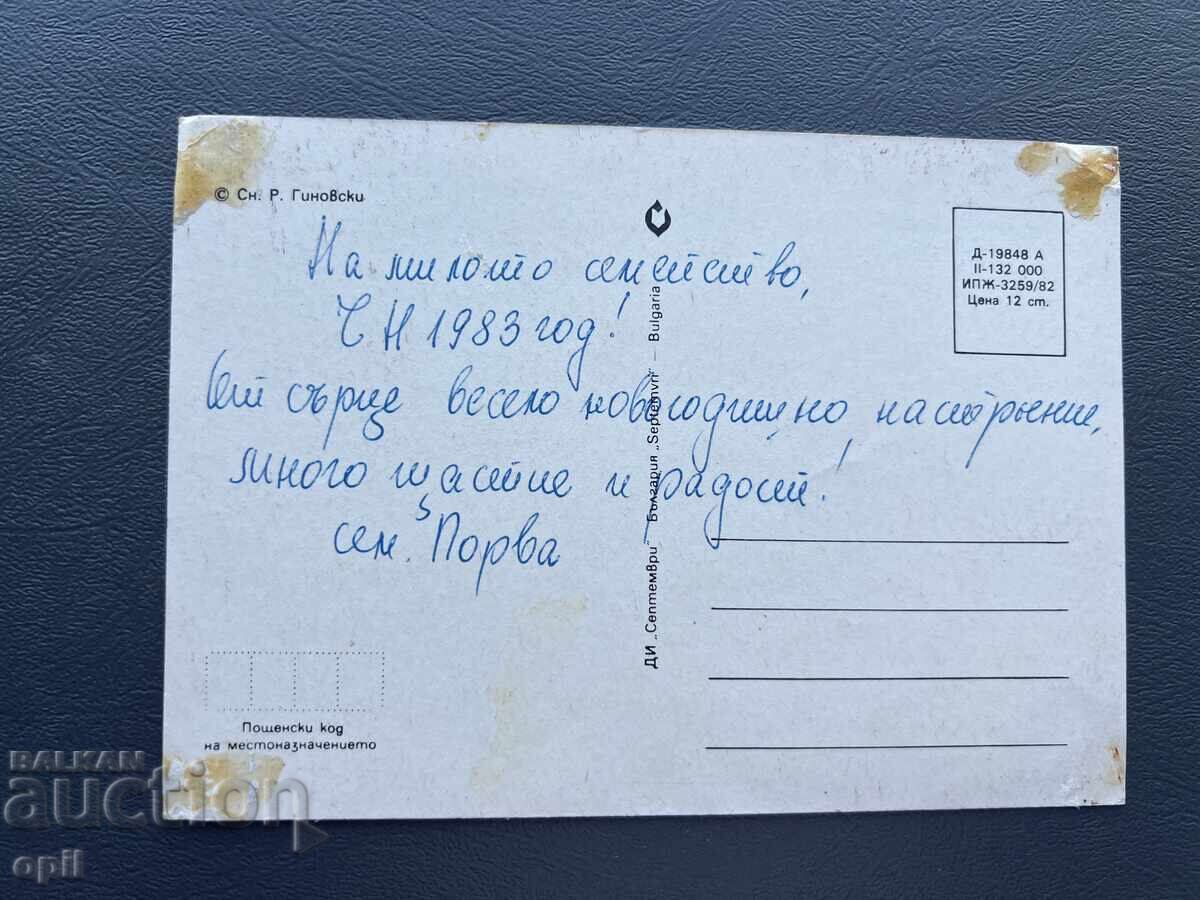 © Сн. Р. Гиновски
На милото семейство,
ЧН 1983 год!
От сърце весело новогодишно настроение,
много щастие и радост!
сем. Порва
Д-19848 А
II-132 000
ИПЖ-3259/82
Цена 12 ст.
ДИ „Септември" България „Septemvri" — Bulgaria
Пощенски код
на местоназначението
BALKAN
auction
opil